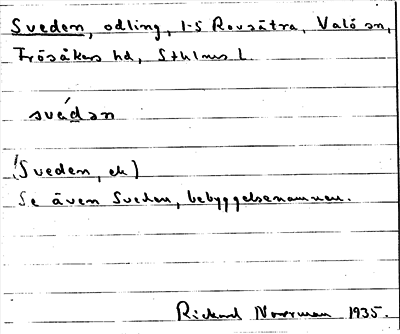 Sveden, odling, 1-5 Rovsätra, Valö sn,
Frösåkers hd, Sthlms l.
svédən
(Sveden, ek)
Se även Sveden, bebyggelsenamnen.
Rickard Norrman 1935.